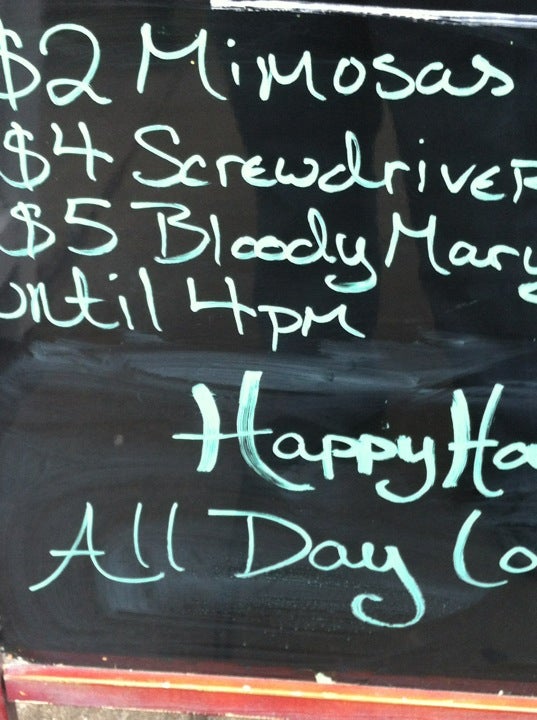 $2 Mimosas
$4 Screwdriver
$5 Bloody Mary
until 4pm
Happy Ho
All Day (o